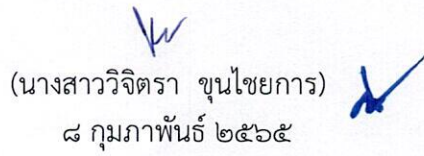 (นางสาววิจิตรา ขุนไชยการ)
๘ กุมภาพันธ์ ๒๕๖๕